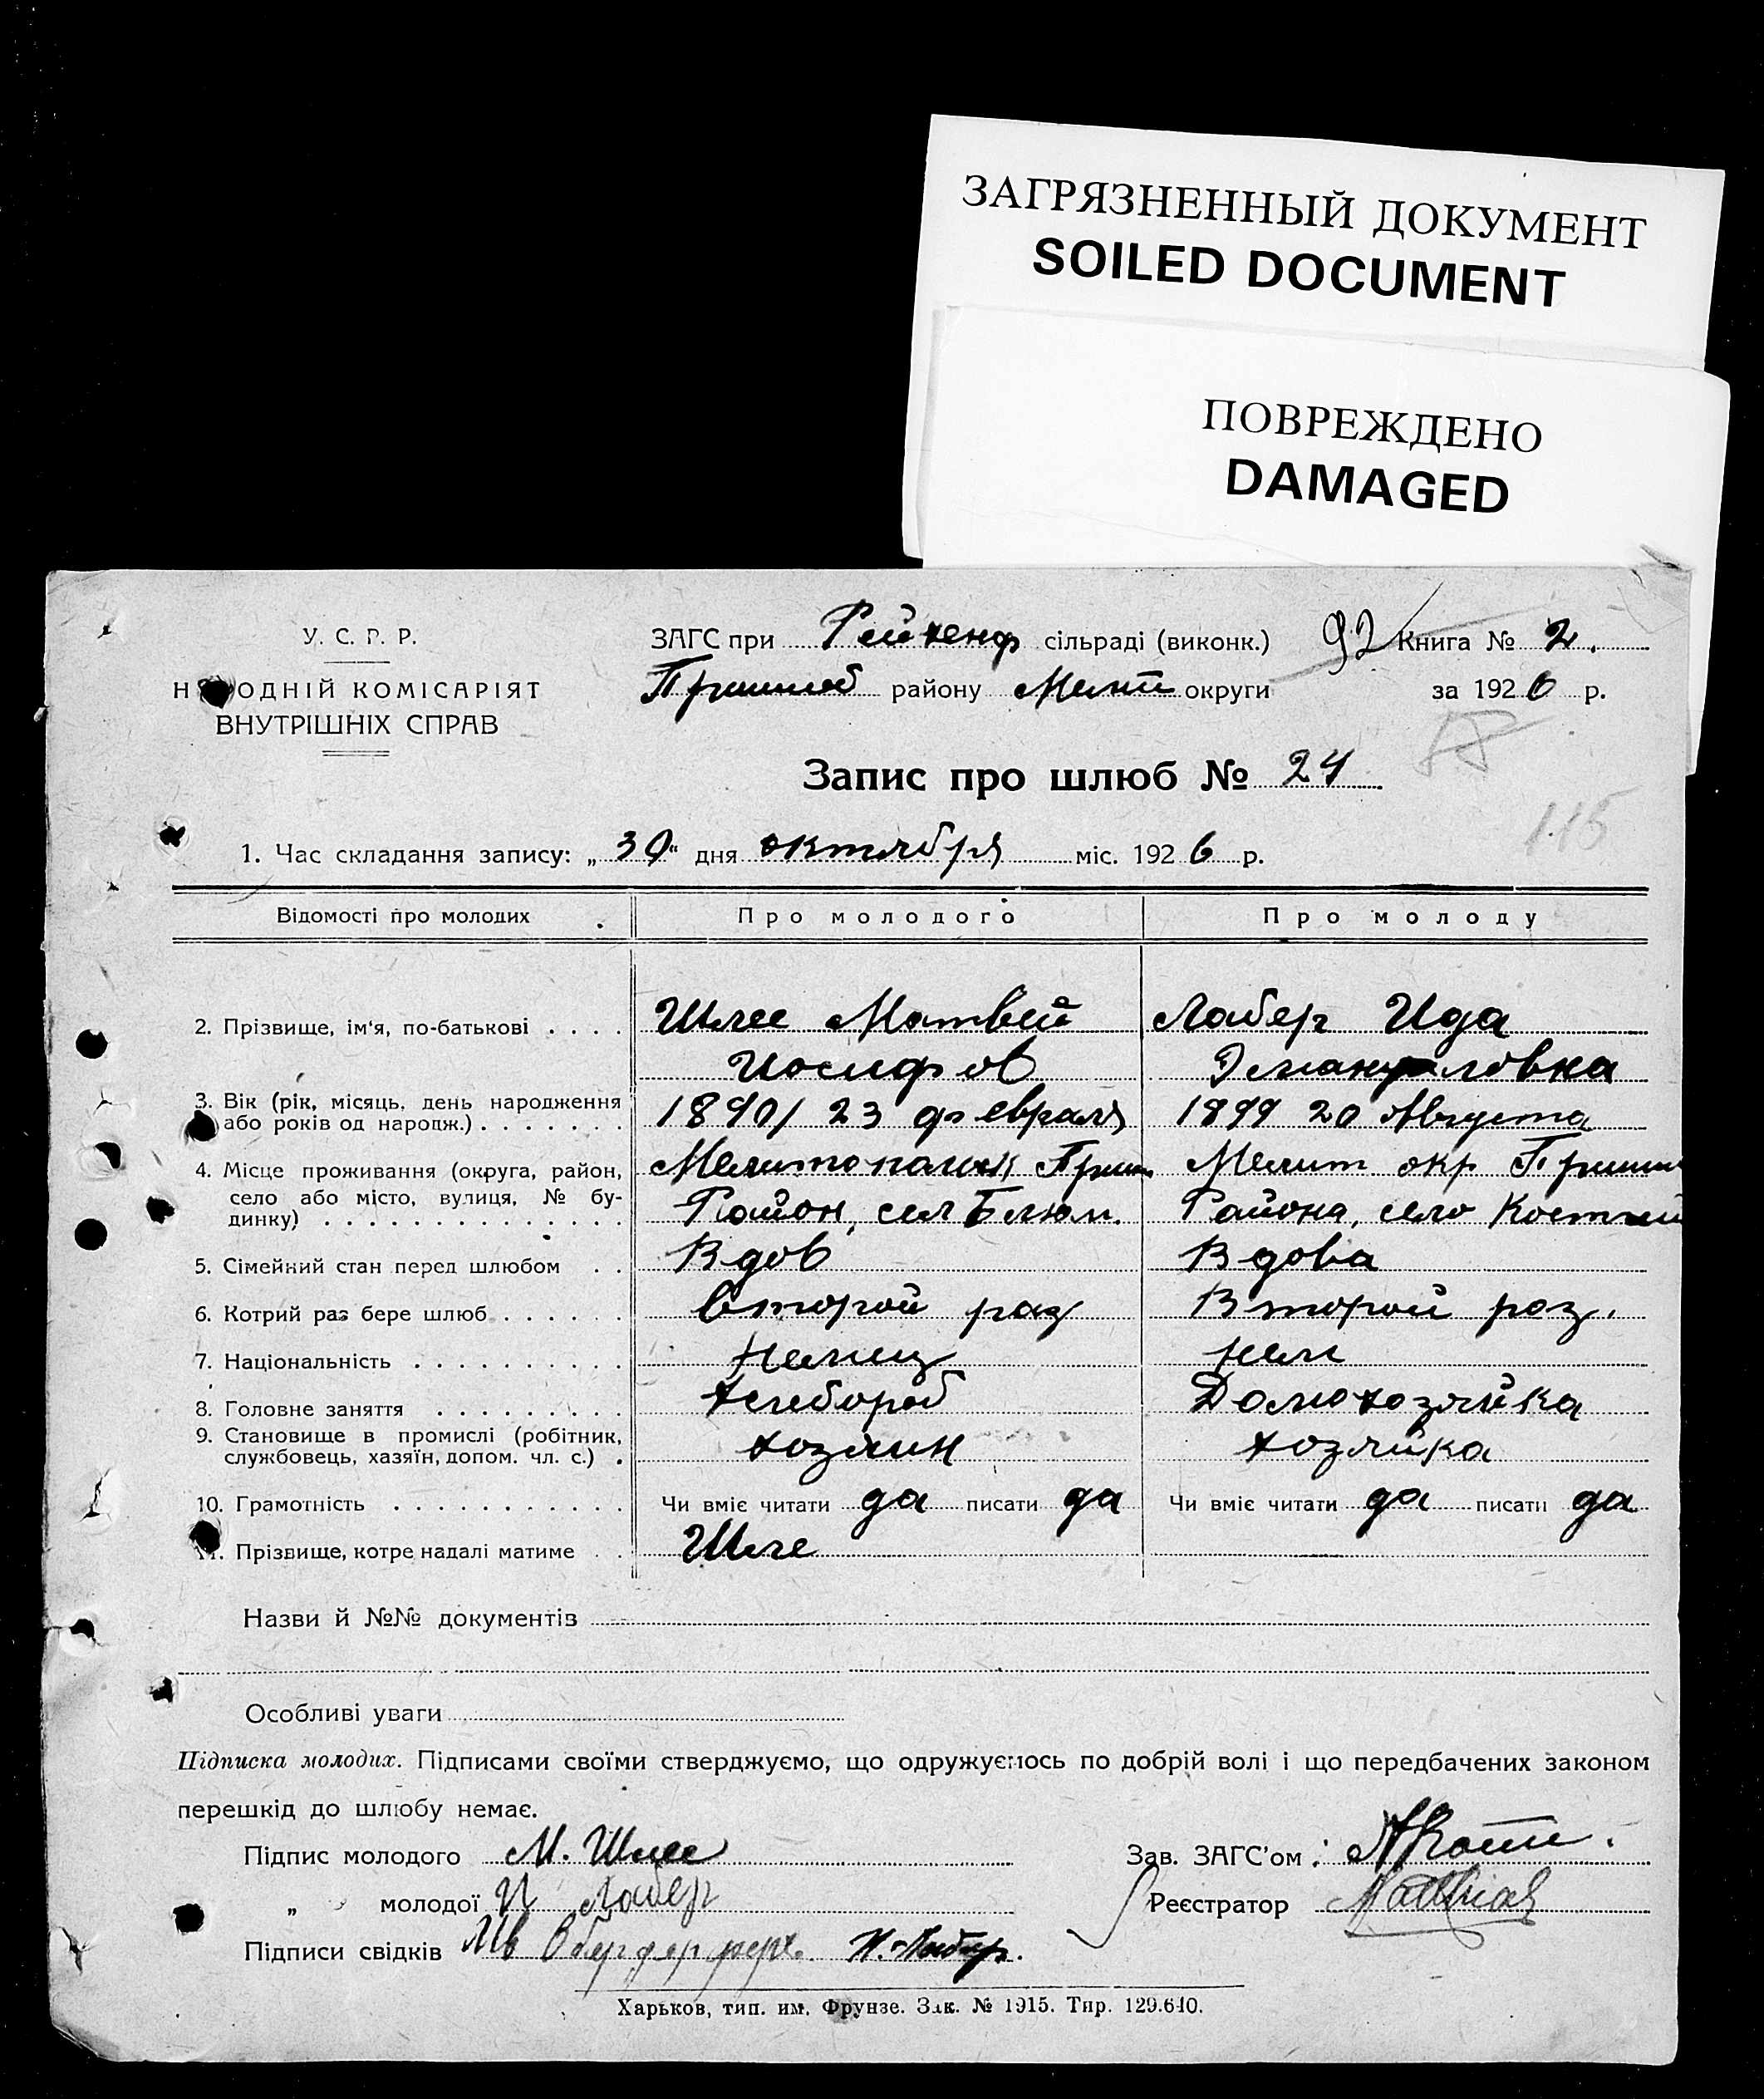 ЗАГРЯЗНЕННЫЙ ДОКУМЕНТ
SOILED DOCUMENT
ПОВРЕЖДЕНО
DAMAGED
У. С. Р. Р.
НАРОДНІЙ КОМІСАРІЯТ
ВНУТРІШНІХ СПРАВ
ЗАГС при Рейхенф сільраді (виконк.) 92 Книга № 2.
Пришиб району Мелит округи за 1926 р.
Запис про шлюб № 24
115
1. Час складання запису: „30“ дня октября міс. 1926 р.
Відомості про молодих Про молодого Про молоду
2. Прізвище, ім'я, по-батькові . . . . Шлее Матвей Лабер Ида
Иосифов Эмануиловна
3. Вік (рік, місяць, день народження
або років од народж.) . . . . . . . 1890/ 23 февраля 1899 20 Августа
4. Місце проживання (округа, район, Мелитопольск Приш Мелит окр Приши
село або місто, вулиця, № бу-
динку) . . . . . . . . . . . . . . Район, сел Блюм. Района, село Костгей
5. Сімейний стан перед шлюбом . . Вдов Вдова
6. Котрий раз бере шлюб . . . . . . второй раз Второй раз.
7. Національність . . . . . . . . . . Немец нем
8. Головне заняття . . . . . . . . . хлебороб Домохозяйка
9. Становище в промислі (робітник,
службовець, хазяїн, допом. чл. с.) . хозяин хозяйка
10. Грамотність . . . . . . . . . . . Чи вміє читати да писати да Чи вміє читати да писати да
11. Прізвище, котре надалі матиме . . Шле
Назви й №№ документів
Особливі уваги
Підписка молодих. Підписами своїми стверджуємо, що одружуємось по добрій волі і що передбачених законом
перешкід до шлюбу немає.
Підпис молодого М. Шлее Зав. ЗАГС'ом:
„ молодої И Лабер Реєстратор
Підписи свідків И. Лабер.
Харьков, тип. им. Фрунзе. Зак. № 1915. Тир. 129.640.